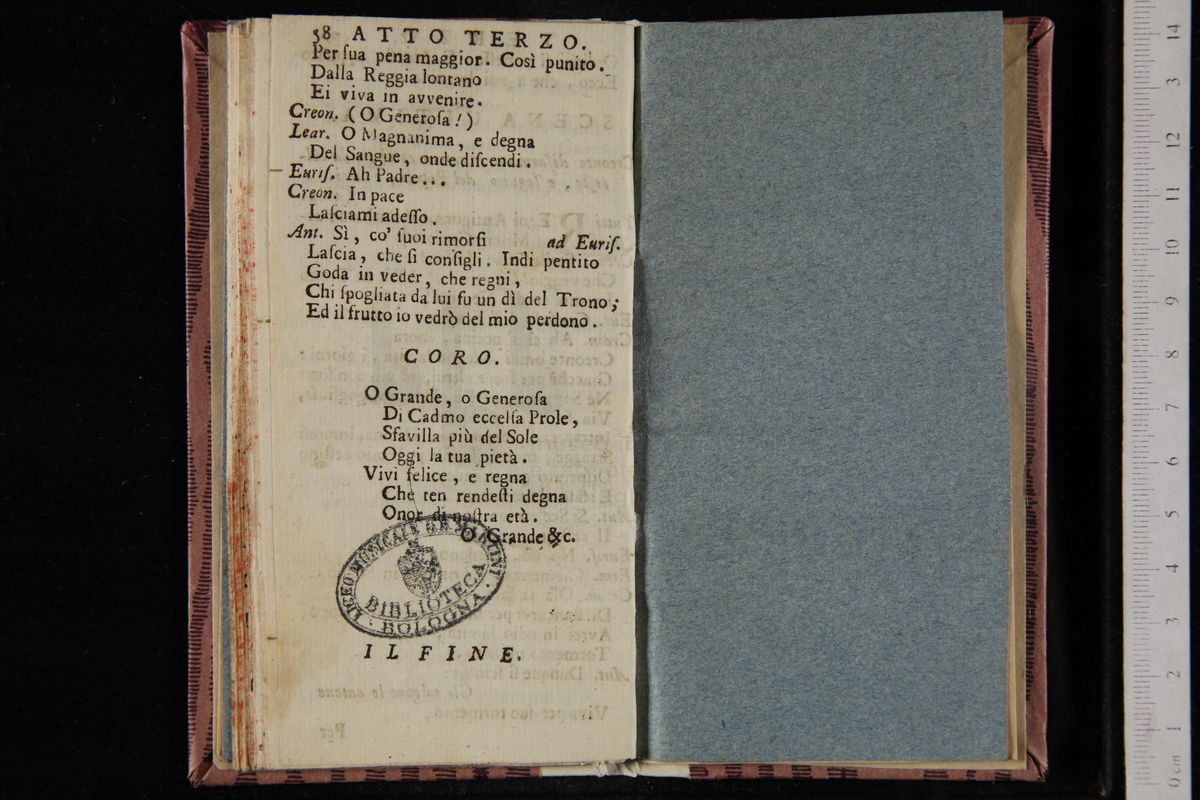 58 ATTO TERZO.
Per ſua pena maggior. Così punito.
Dalla Reggia lontano
Ei viva in avvenire.
Creon. (O Generoſa!)
Lear. O Magnanima, e degna
Del Sangue, onde diſcendi.
Euriſ. Ah Padre...
Creon. In pace
Laſciami adeſſo.
Ant. Sì, co' ſuoi rimorſi ad Euriſ.
Laſcia, che ſi conſigli. Indi pentito
Goda in veder, che regni,
Chi ſpogliata da lui fu un dì del Trono;
Ed il frutto io vedrò del mio perdono.
CORO.
O Grande, o Generoſa
Di Cadmo eccelſa Prole,
Sfavilla più del Sole
Oggi la tua pietà.
Vivi felice, e regna
Che ten rendeſti degna
Onor di noſtra età.
O Grande &c.
LICEO MUSICALE G.B. MARTINI
BIBLIOTECA
BOLOGNA
IL FINE.
0 cm 1 2 3 4 5 6 7 8 9 10 11 12 13 14